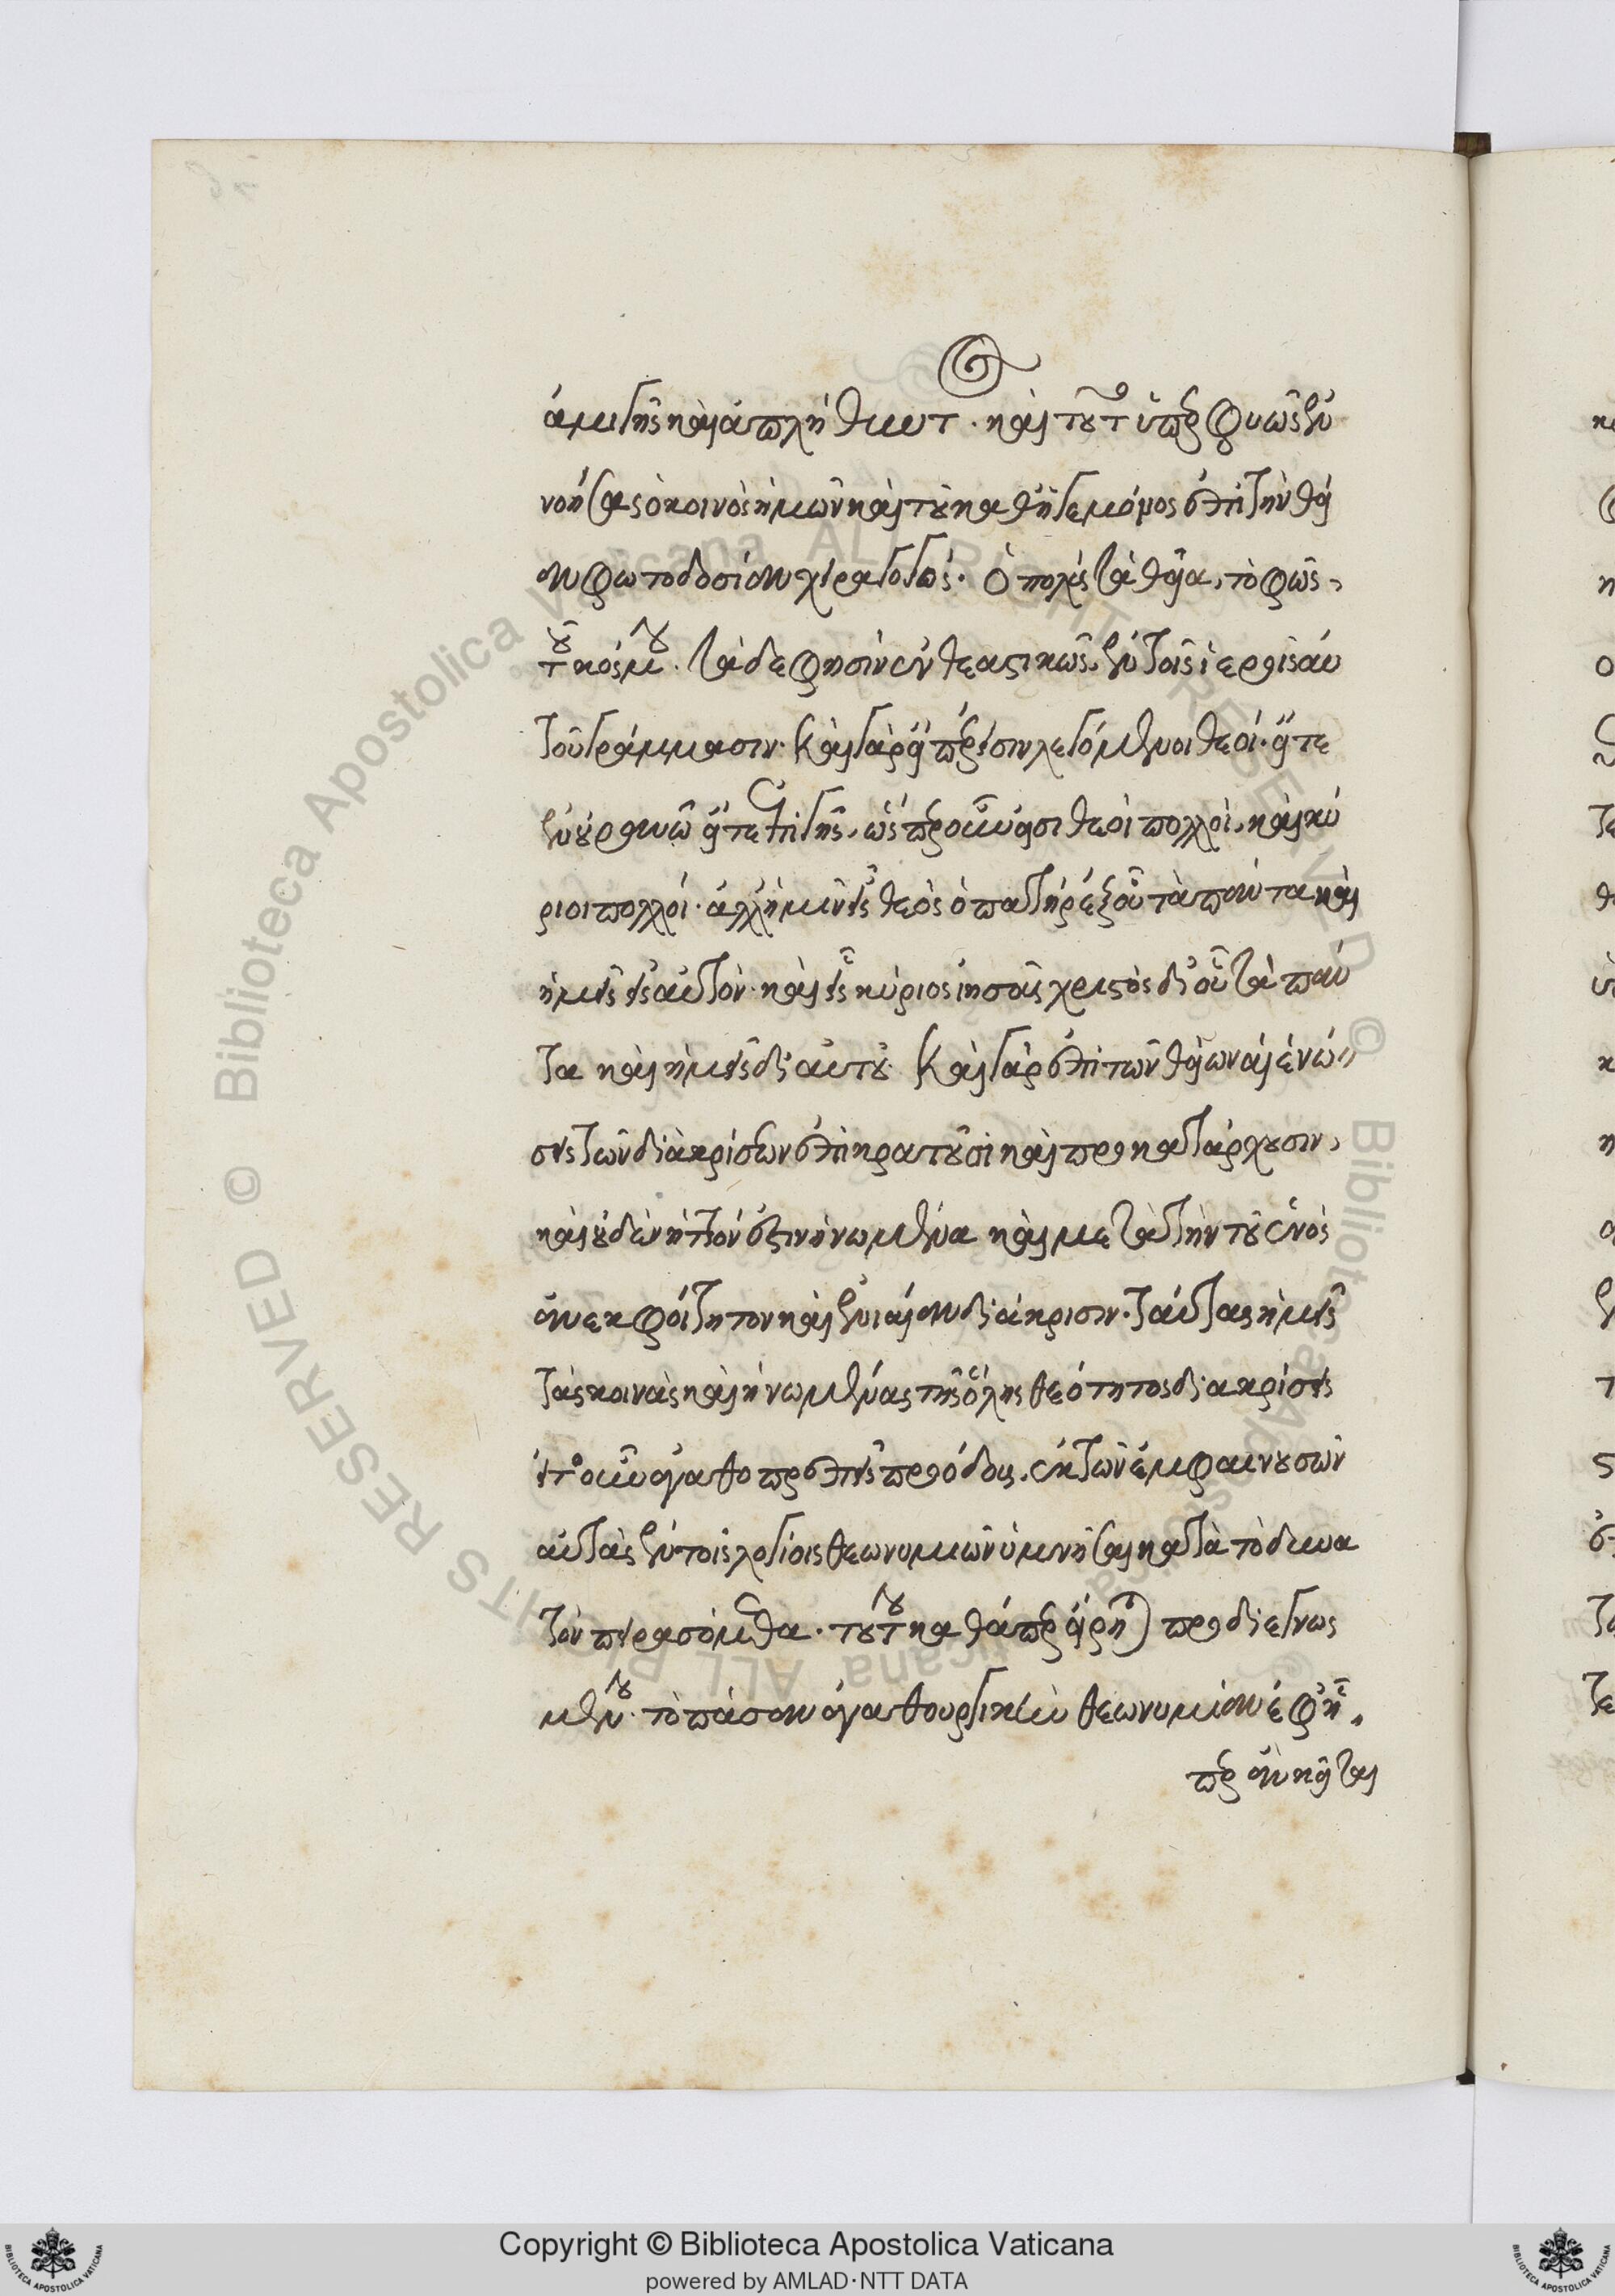 ἀμιγὴς καὶ ἀπλήθυντος. καὶ τοῦτο ὑπερφυῶς ἐν
νοήσας ὁ κοινὸς ἡμῶν καὶ τοῦ καθηγεμόνος ἐπὶ τὴν θεί
αν φωτοδοσίαν χειραγωγός. ὁ πολὺς τὰ θεῖα, τὸ φῶς,
τοῦ κόσμου. τάδε φησὶν ἐνθεαστικῶς, ἐν τοῖς ἱεροῖς αὐ
τοῦ γράμμασιν. Καὶ γὰρ εἴπερ εἰσὶν λεγόμενοι θεοί. εἴτε
ἐν οὐρανῷ εἴτε ἐπὶ γῆς, ὥσπερ οὖν εἰσι θεοὶ πολλοὶ, καὶ κύ
ριοι πολλοί. ἀλλ' ἡμῖν εἷς θεὸς ὁ πατὴρ ἐξ οὗ τὰ πάντα καὶ
ἡμεῖς εἰς αὐτὸν. καὶ εἷς κύριος ἰησοῦς χριστὸς δι' οὗ τὰ πάν
τα καὶ ἡμεῖς δι' αὐτοῦ. Καὶ γὰρ ἐπὶ τῶν θείων αἱ ἑνώ
σεις τῶν διακρίσεων ἐπικρατοῦσι καὶ προκατάρχουσιν,
καὶ οὐδὲν ἧττόν ἐστιν ἡνωμένα καὶ μετὰ τὴν τοῦ ἑνὸς
ἀνεκφοίτητον καὶ ἑνιαίαν διάκρισιν. ταύτας ἡμεῖς
τὰς κοινὰς καὶ ἡνωμένας τῆς ὅλης θεότητος διακρίσεις
εἴτουν ἀγαθοπρεπεῖς προόδους, ἐκ τῶν ἐμφαινουσῶν
αὐτὰς ἐν τοῖς λογίοις θεωνυμιῶν ὑμνῆσαι κατὰ τὸ δυνα
τὸν πειρασόμεθα. τούτου καθάπερ εἴρηται προδιεγνως
μένου. τὸ πᾶσαν ἀγαθουργικὴν θεωνυμίαν ἐφ' ᾗ,
περ ἂν κεῖται
Copyright © Biblioteca Apostolica Vaticana
powered by AMLAD·NTT DATA